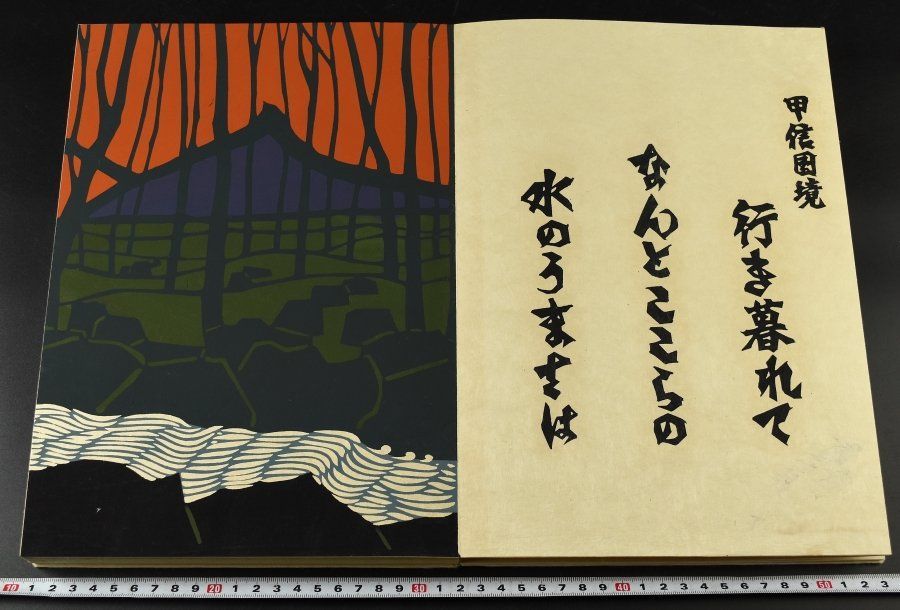 甲信国境
行き暮れて
なんとここらの
水のうまさは
10 1 2 3 4 5 6 7 8 9 20 1 2 3 4 5 6 7 8 9 30 1 2 3 4 5 6 7 8 9 40 1 2 3 4 5 6 7 8 9 50 1 2 3